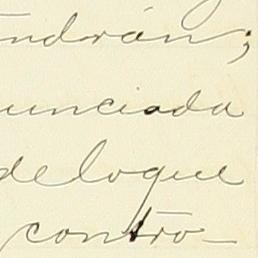 ndrán;
unciada
de loque
contro-